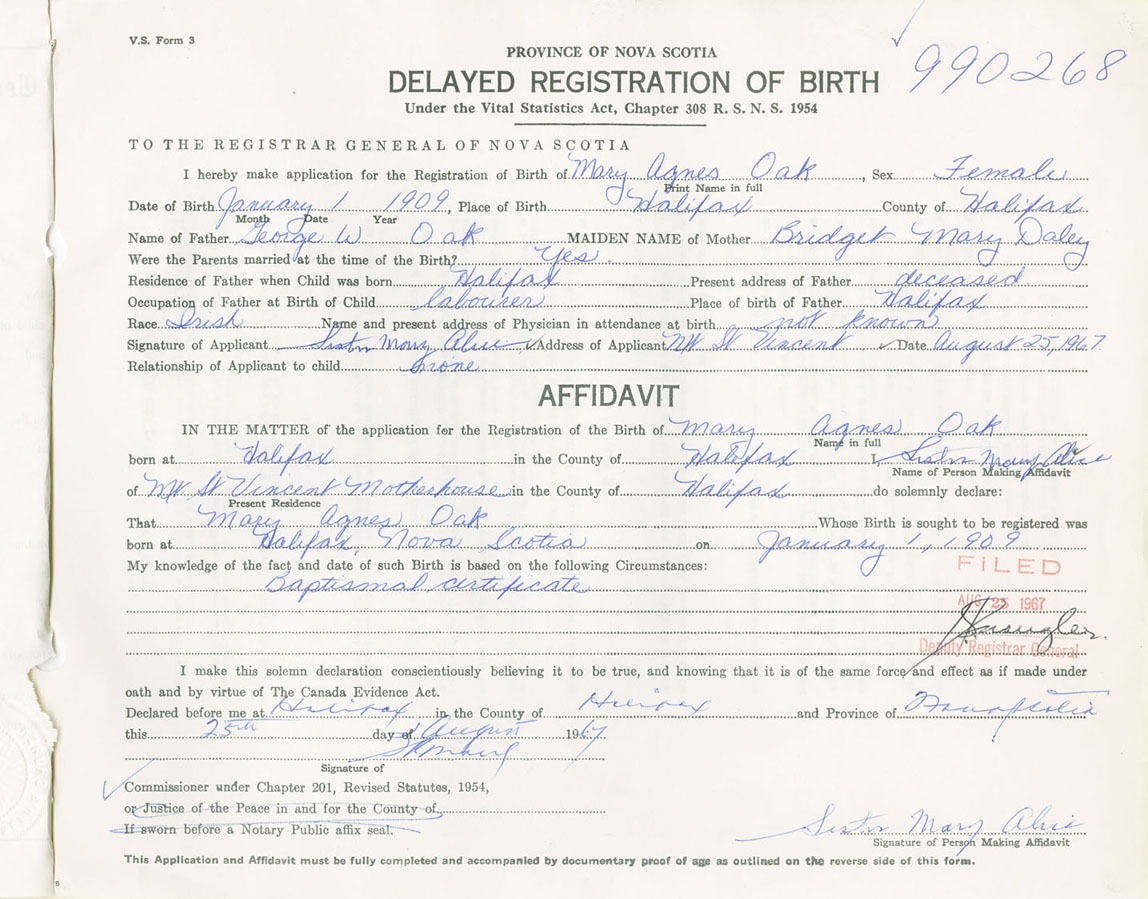 V.S. Form 3
990268
PROVINCE OF NOVA SCOTIA
DELAYED REGISTRATION OF BIRTH
Under the Vital Statistics Act, Chapter 308 R. S. N. S. 1954
TO THE REGISTRAR GENERAL OF NOVA SCOTIA
I hereby make application for the Registration of Birth of Mary Agnes Oak, Sex Female
Print Name in full
Date of Birth January 1 1909, Place of Birth Halifax County of Halifax
Month Date Year
Name of Father George W Oak MAIDEN NAME of Mother Bridget Mary Daley
Were the Parents married at the time of the Birth? Yes.
Residence of Father when Child was born Halifax Present address of Father deceased
Occupation of Father at Birth of Child labourer Place of birth of Father Halifax
Race Irish Name and present address of Physician in attendance at birth not known
Signature of Applicant Sister Mary Alice Address of Applicant Mt St Vincent Date August 25, 1967
Relationship of Applicant to child none
AFFIDAVIT
IN THE MATTER of the application for the Registration of the Birth of Mary Agnes Oak
Name in full
born at Halifax in the County of Halifax I, Sister Mary Alice
Name of Person Making Affidavit
of Mt St Vincent Motherhouse in the County of Halifax do solemnly declare:
Present Residence
That Mary Agnes Oak Whose Birth is sought to be registered was
born at Halifax, Nova Scotia on January 1, 1909
My knowledge of the fact and date of such Birth is based on the following Circumstances:
Baptismal certificate
FILED
AUG 25 1967
Deputy Registrar General
I make this solemn declaration conscientiously believing it to be true, and knowing that it is of the same force and effect as if made under
oath and by virtue of The Canada Evidence Act.
Declared before me at Halifax in the County of Halifax and Province of Nova Scotia
this 25th day of August 1967
Signature of
Commissioner under Chapter 201, Revised Statutes, 1954,
or Justice of the Peace in and for the County of
If sworn before a Notary Public affix seal.
Sister Mary Alice
Signature of Person Making Affidavit
This Application and Affidavit must be fully completed and accompanied by documentary proof of age as outlined on the reverse side of this form.